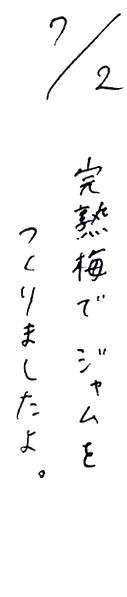 7/2
完熟梅で ジャムを
つくりましたよ。